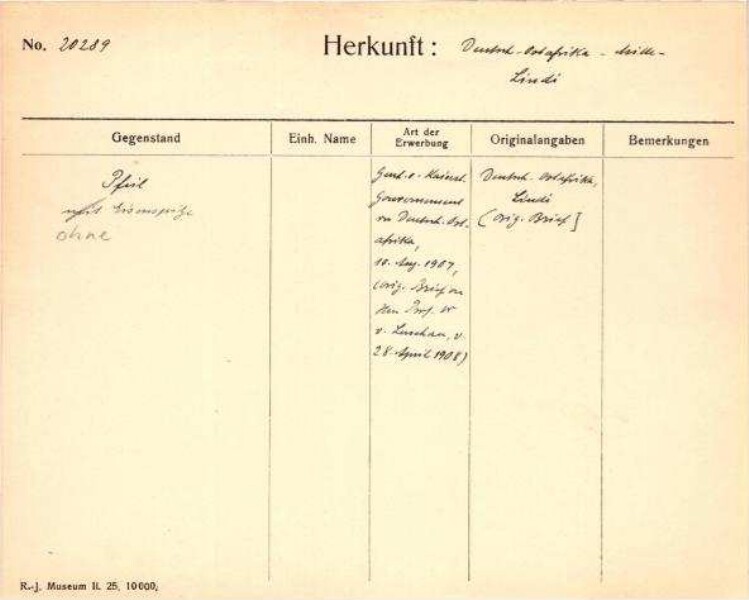 No. 20289
Herkunft: Deutsch-Ostafrika -
Lindi
Gegenstand
Einh. Name
Art der Erwerbung
Originalangaben
Bemerkungen
Pfeil
mit Eisenspitze
ohne
Kaiserl.
Gouvernement
Deutsch-Ost-
afrika,
10. Aug. 1907,
(orig. Brief an
Herrn Prof. Dr
v. Luschan, v.
28 April 1908)
Deutsch-Ostafrika,
Lindi
(orig. Brief]
R.-J. Museum II. 25, 10000.